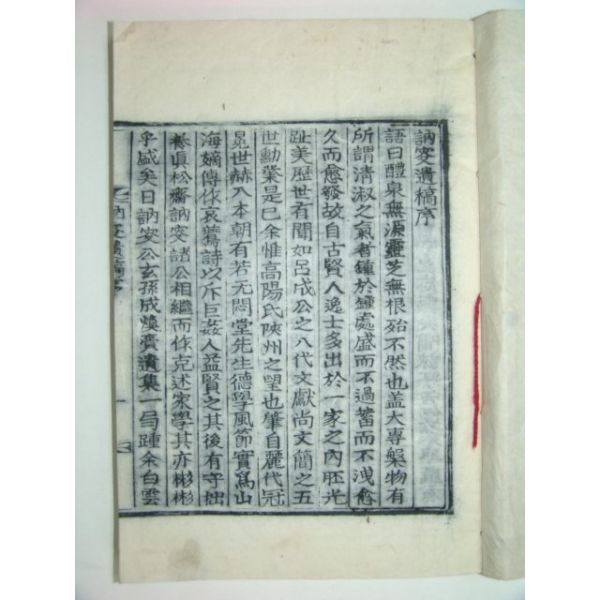 訥窔遺稿序
語曰醴泉無源靈芝無根殆不然也盖大專槃物有
所謂清淑之氣者鍾於鍾處盛而不過蓄而不洩愈
久而愈發故自古賢人逸士多出於一家之內胚光
趾美歷世有聞如呂成公之八代文獻尚文簡之五
世勳業是已余惟高陽氏陜州之望也肇自麗代冠
冕世赫入本朝有若無悶堂先生德學風節實爲山
海嫡傳作哀鷰詩以斥巨姦人益賢之其後有守拙
養眞松齋訥窔諸公相繼而作克述家學其亦彬彬
乎盛矣日訥窔公玄孫成煥齊遺集一局踵余白雲